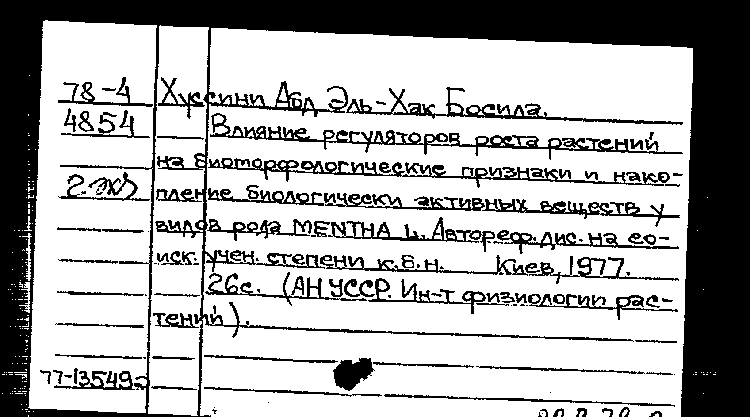 78-4 Хуссини Абд Эль-Хак Босила.
4854 Влияние регуляторов роста растений
на биоморфологические признаки и нако-
2 экз пление биологически активных веществ у
видов рода MENTHA L. Автореф. дис. на со-
иск. учен. степени к.б.н. Киев, 1977.
26с. (АН УССР. Ин-т физиологии рас-
тений).
77-13549а